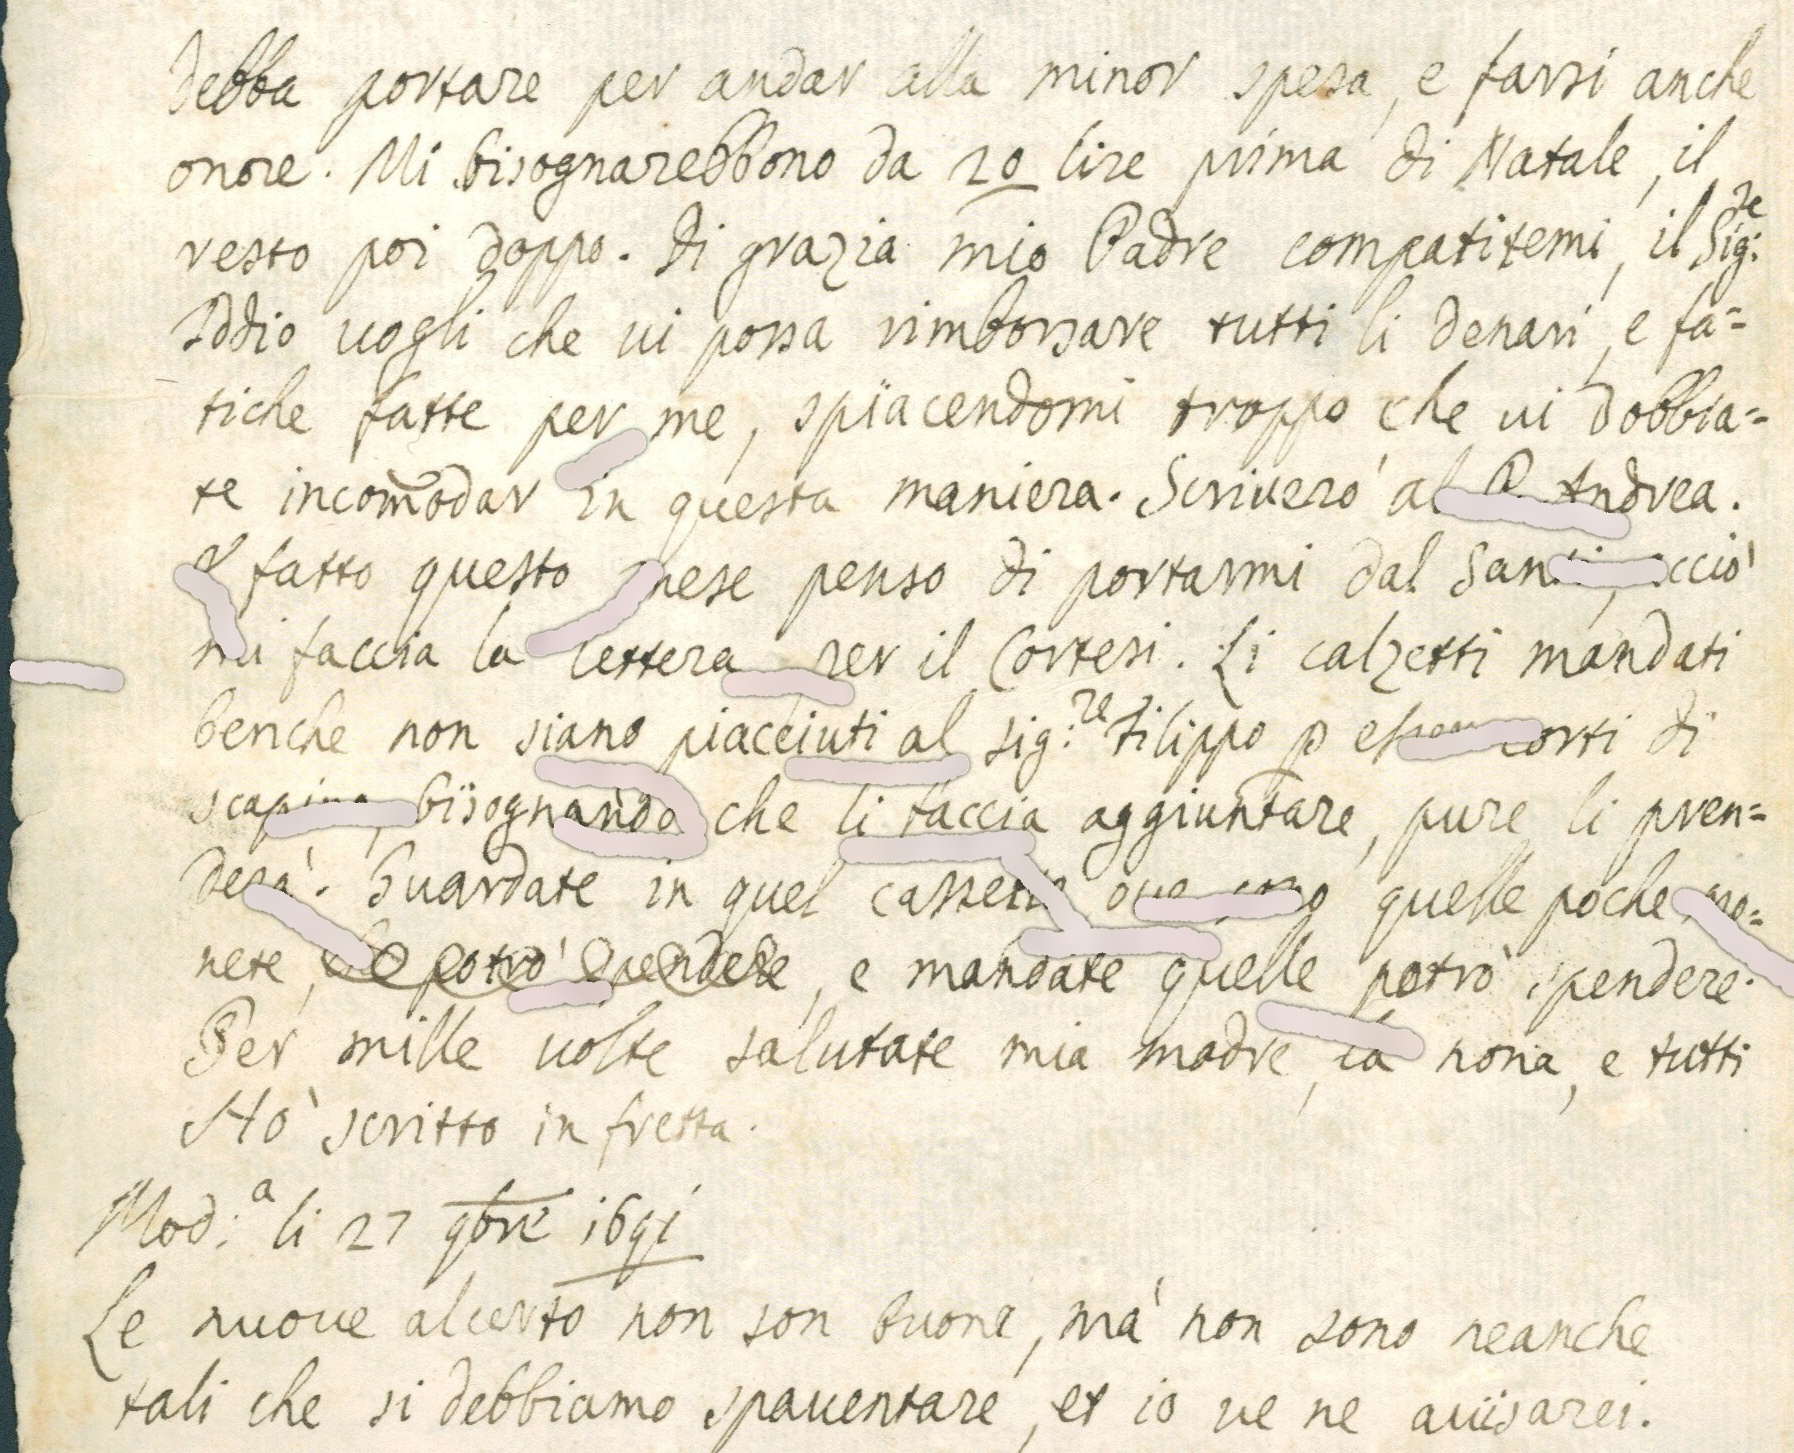 debba portare per andar alla minor spesa, e farsi anche
onore. Mi bisognarebbono da 20 lire prima di Natale, il
resto poi doppo. Di grazia mio Padre compatitemi, il Sig:re
Iddio uogli che ui possa rimborsare tutti li denari, e fa=
tiche fatte per me, spiacendomi troppo che ui dobbia=
te incomodar in questa maniera. Scriuerò al P. Andrea.
E fatto questo mese penso di portarmi dal acciò
mi faccia la lettera per il Cortesi. Li calzetti mandati
benche non siano piacciuti al sig:re Filippo p corti di
bisognando che li faccia aggiuntare, pure li pren=
derà. Guardate in quel cassetto oue sono quelle poche mo=
nete, che potrò spendere, e mandate quelle potrò spendere.
Per mille uolte salutate mia madre, la nona, e tutti
Hò scritto in fretta.
Mod:a li 27 9bre 1691
Le nuoue alcerto non son buone, mà non sono neanche
tali che si debbiamo spauentare, et io ue ne auisarei.